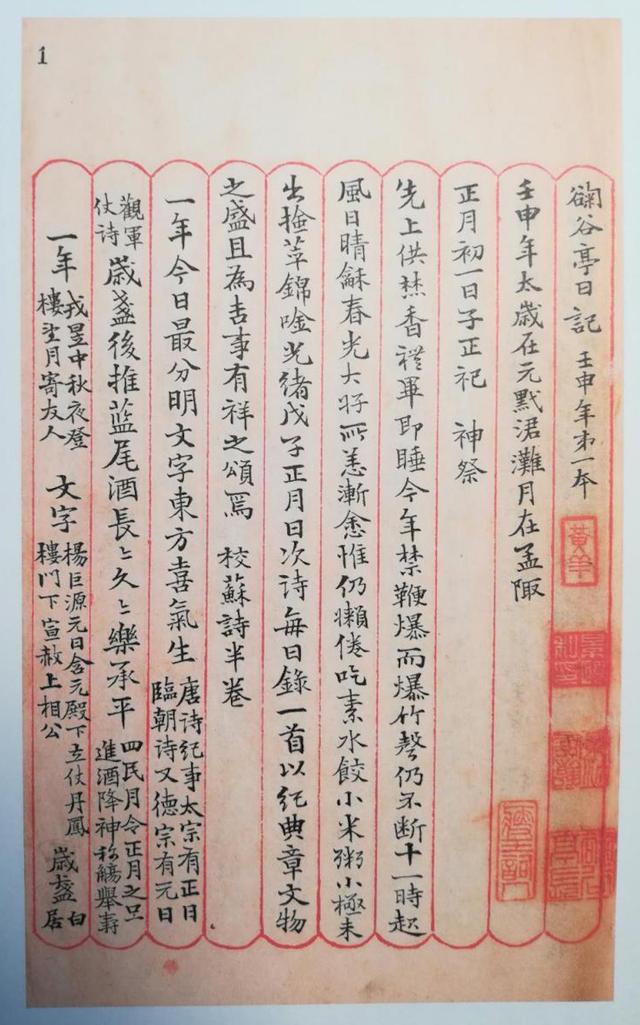 1
𩕄谷亭日記 壬申年第一本
黃羊
壬申年太歲在元黓涒灘月在孟陬
正月初一日子正祀 神祭
先上供焚香禮畢即睡今年禁鞭爆而爆竹聲仍不斷十一時起
風日晴龢春光大好所恙漸愈惟仍懶倦吃素水餃小米粥小極未
出撿萃錦唫光緒戊子正月日次詩每日錄一首以紀典章文物
之盛且為吉事有祥之頌焉 校蘇詩半卷
一年今日最分明文字東方喜氣生 唐詩紀事太宗有正日臨朝詩又德宗有元日
觀軍仗詩 歲盞後推藍尾酒長〻久〻樂承平 四民月令正月之旦進酒降神称觴舉壽
一年 戎昱中秋夜登樓望月寄友人 文字 楊巨源元日含元殿下立仗丹鳳樓門下宣赦上相公 歲盞 白居